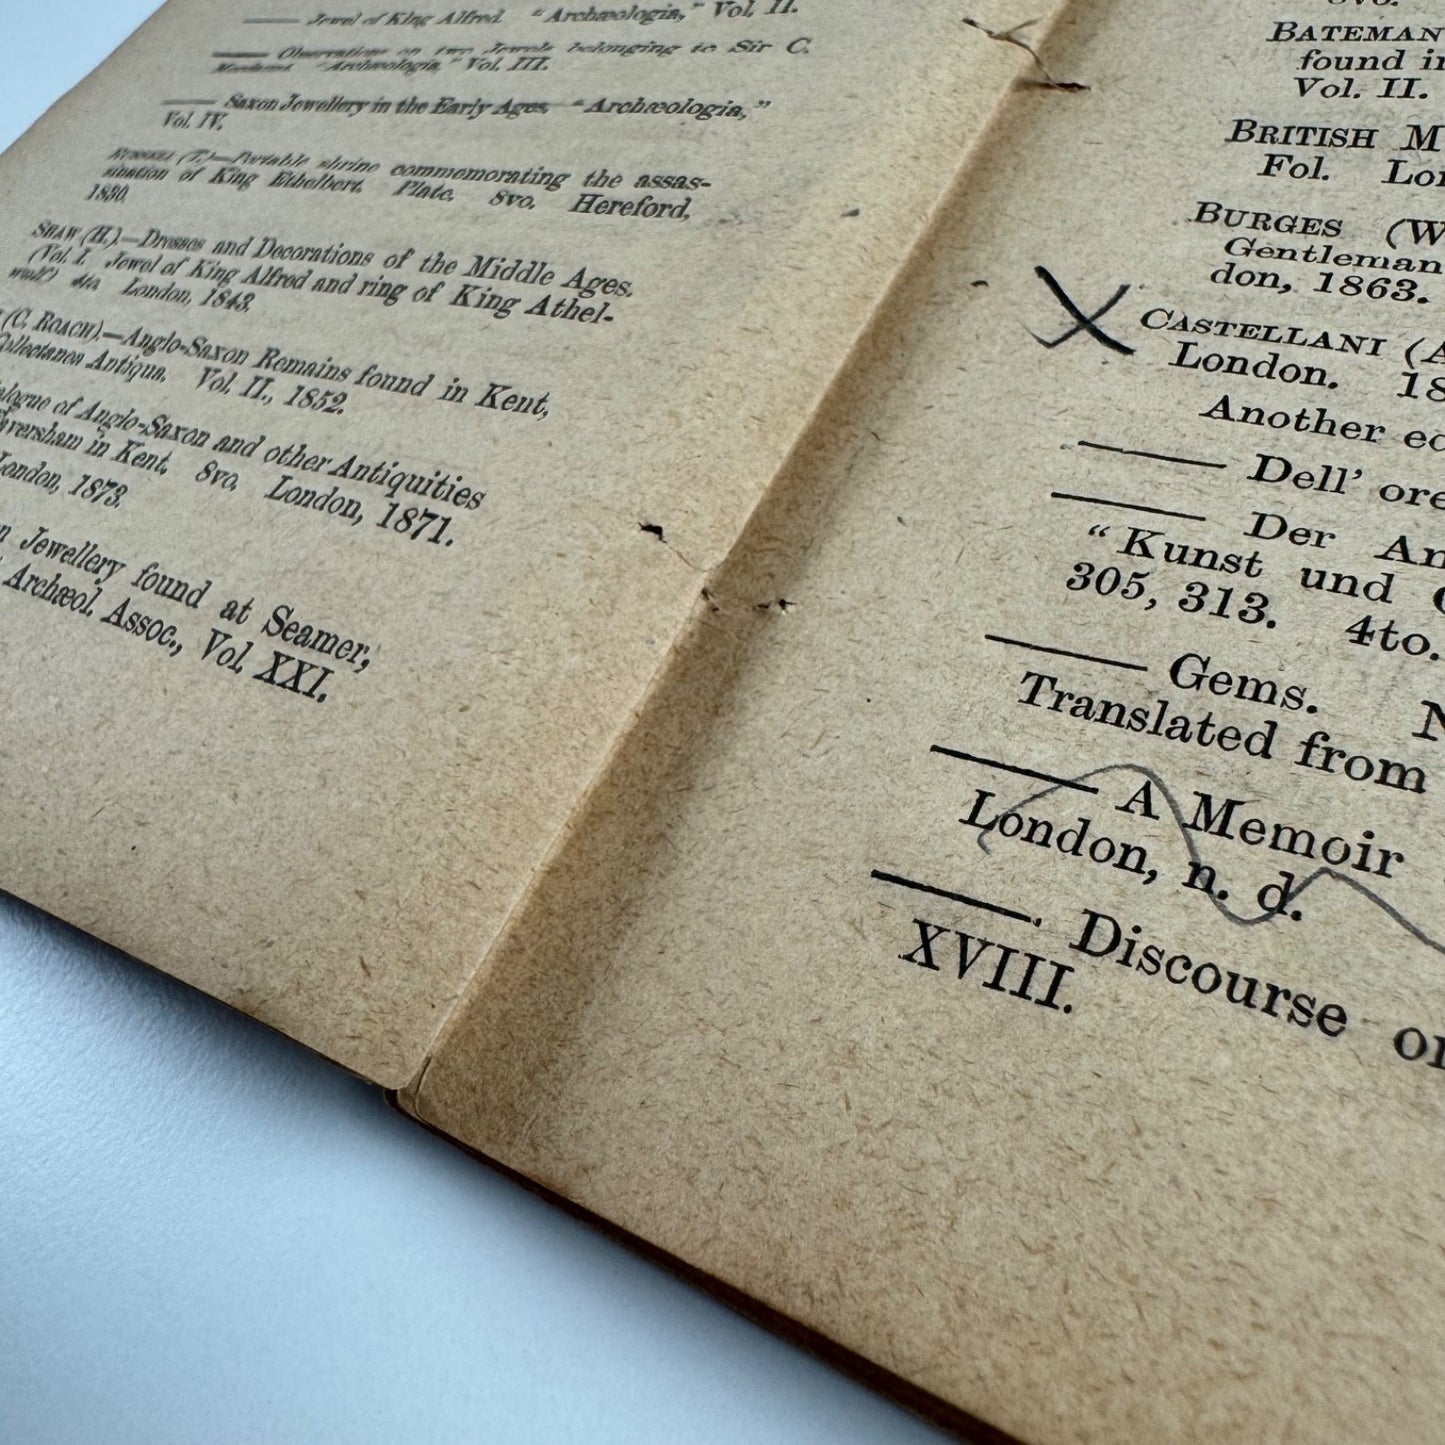 —— Jewel of King Alfred. "Archæologia," Vol. II.
—— Observations on two Jewels belonging to Sir C.
"Archæologia," Vol. III.
—— Saxon Jewellery in the Early Ages. "Archæologia,"
Vol. IV.
RUSSELL (T.)—Portable shrine commemorating the assas-
sination of King Ethelbert. Plate. 8vo. Hereford,
1830.
SHAW (H.)—Dresses and Decorations of the Middle Ages.
(Vol. I. Jewel of King Alfred and ring of King Athel-
wulf) 4to. London, 1843.
(C. ROACH).—Anglo-Saxon Remains found in Kent,
Collectanea Antiqua. Vol. II., 1852.
alogue of Anglo-Saxon and other Antiquities
aversham in Kent. 8vo. London, 1871.
London, 1873.
n Jewellery found at Seamer,
Archæol. Assoc., Vol. XXI.
8vo.
BATEMAN
found in
Vol. II.
BRITISH M
Fol. Lon
BURGES (W
Gentleman
don, 1863.
CASTELLANI (A
London. 18
Another ed
—— Dell' ore
—— Der An
"Kunst und G
305, 313. 4to.
—— Gems. N
Translated from
—— A Memoir
London, n. d.
——. Discourse on
XVIII.